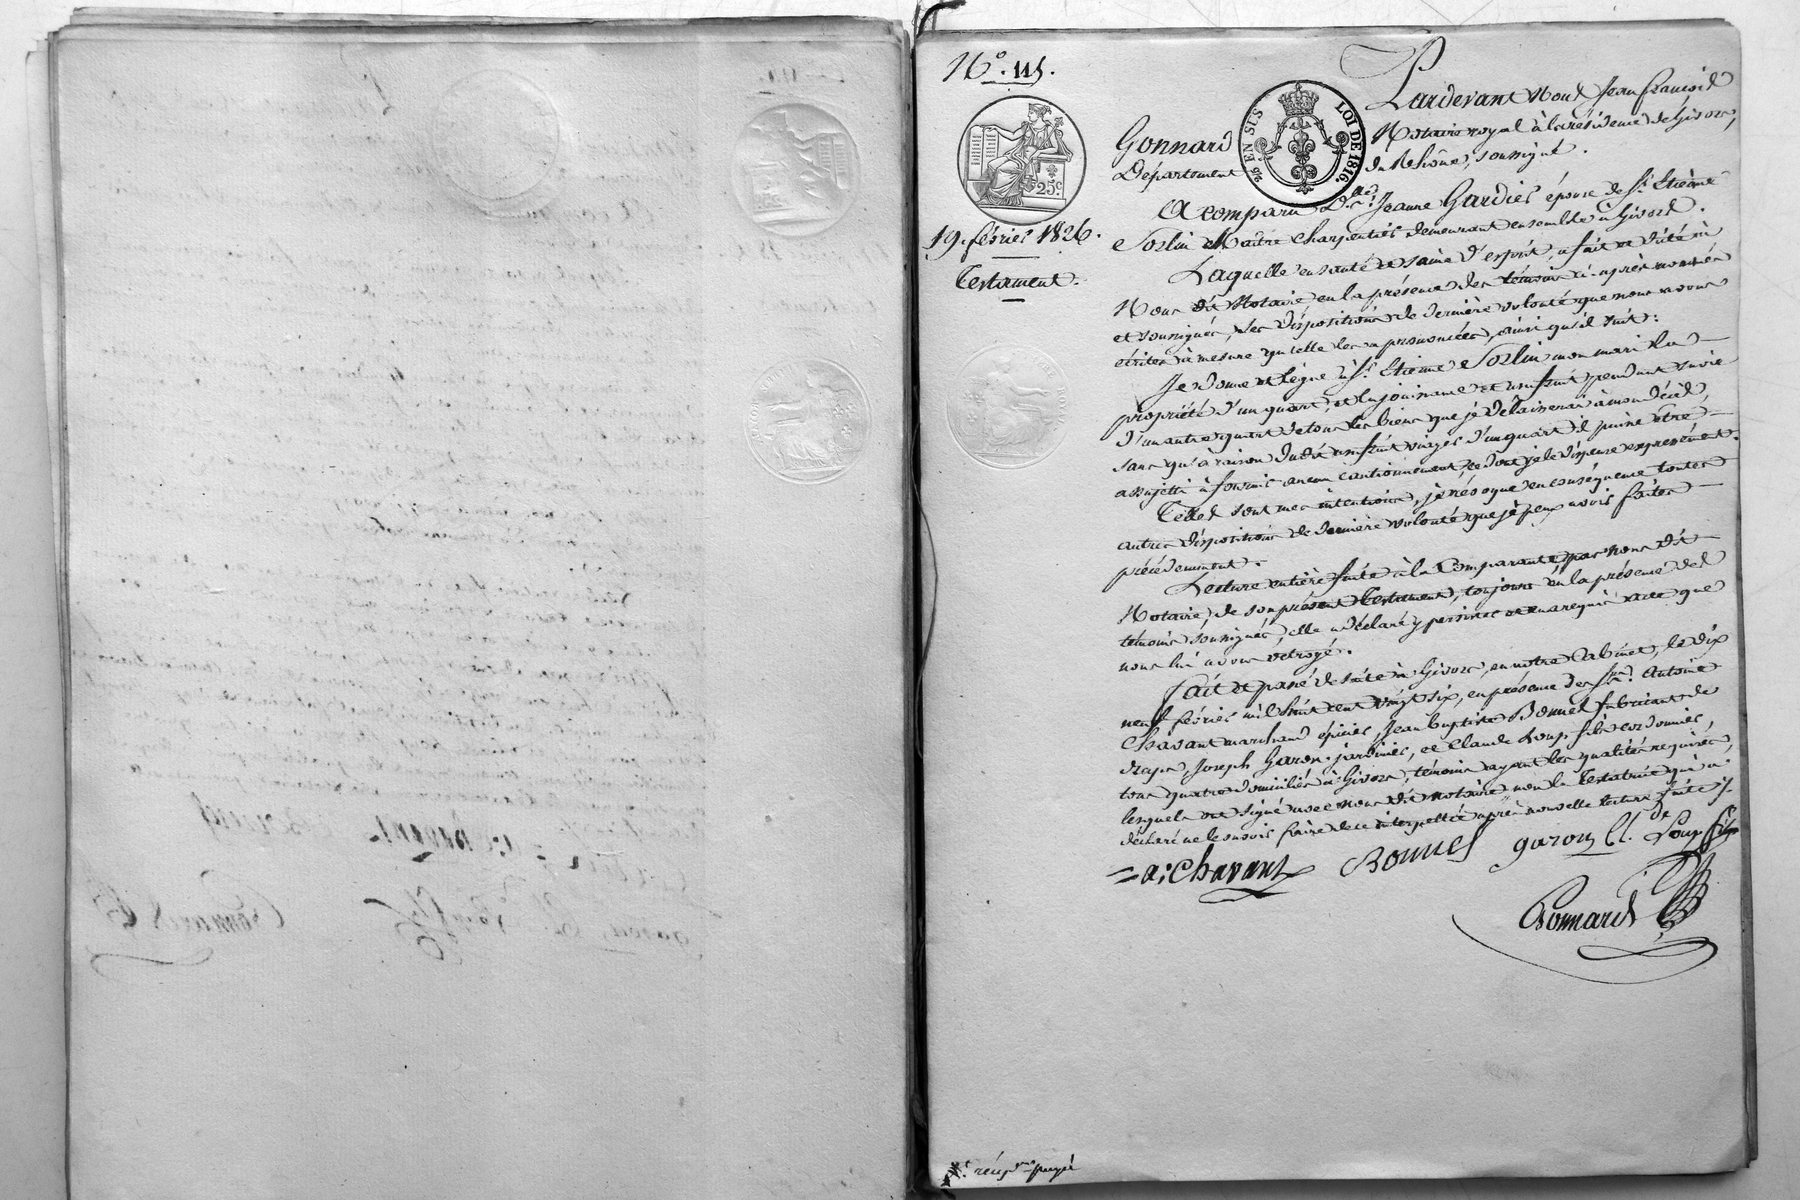 N.° 115.
25 c.
EN SUS
LOI DE 1816.
19. février 1826.
Testament.
Pardevant Nous Jean françois
Gonnard Notaire royal à la résidence de Givors,
Département du Rhône, soussigné.
A comparu D.e Jeanne Gardies épouse de S.r Etienne
Maître charpentier demeurant ensemble à Givors.
Laquelle en santé et saine d'esprit, a fait et dicté à
Nous dit Notaire, en la présence des témoins ci-après nommés
et soussignés, ses dispositions de dernière volonté que nous avons
écrites à mesure qu'elle les a prononcées, ainsi qu'il suit:
Je donne et lègue à S.r Etienne mon mari la
propriété d'un quart, et la jouissance et usufruit pendant sa vie
d'un autre quart de tous les biens que je délaisserai à mon décès,
sans qu'à raison dudit usufruit viager d'un quart il puisse être
assujetti à fournir aucun cautionnement, ce dont je le dispense expressément.
Telles sont mes intentions, je révoque en conséquence toutes
autres dispositions de dernière volonté que je peux avoir faites
précédemment.
Lecture entière faite à la Comparante par nous dit
Notaire, de son présent Testament, toujours en la présence des
témoins soussignés, elle a déclaré y persister et en a requis acte que
nous lui avons octroyé.
Fait et passé de suite à Givors, en notre Cabinet, le dix
neuf février mil huit cent vingt six, en présence des S.rs Antoine
Chavant marchand épicier, Jean baptiste Bonnet fabricant de
draps, Joseph Garon jardinier, et Claude Loup fils cordonnier,
tous quatre domiciliés à Givors, témoins ayant les qualités requises,
lesquels ont signé avec nous dit notaire non la Testatrice qui a
déclaré ne le savoir faire de ce interpellée après nouvelle lecture faite.
a: Chavant Bonnet garon Cl.de Loup fils
Gonnard